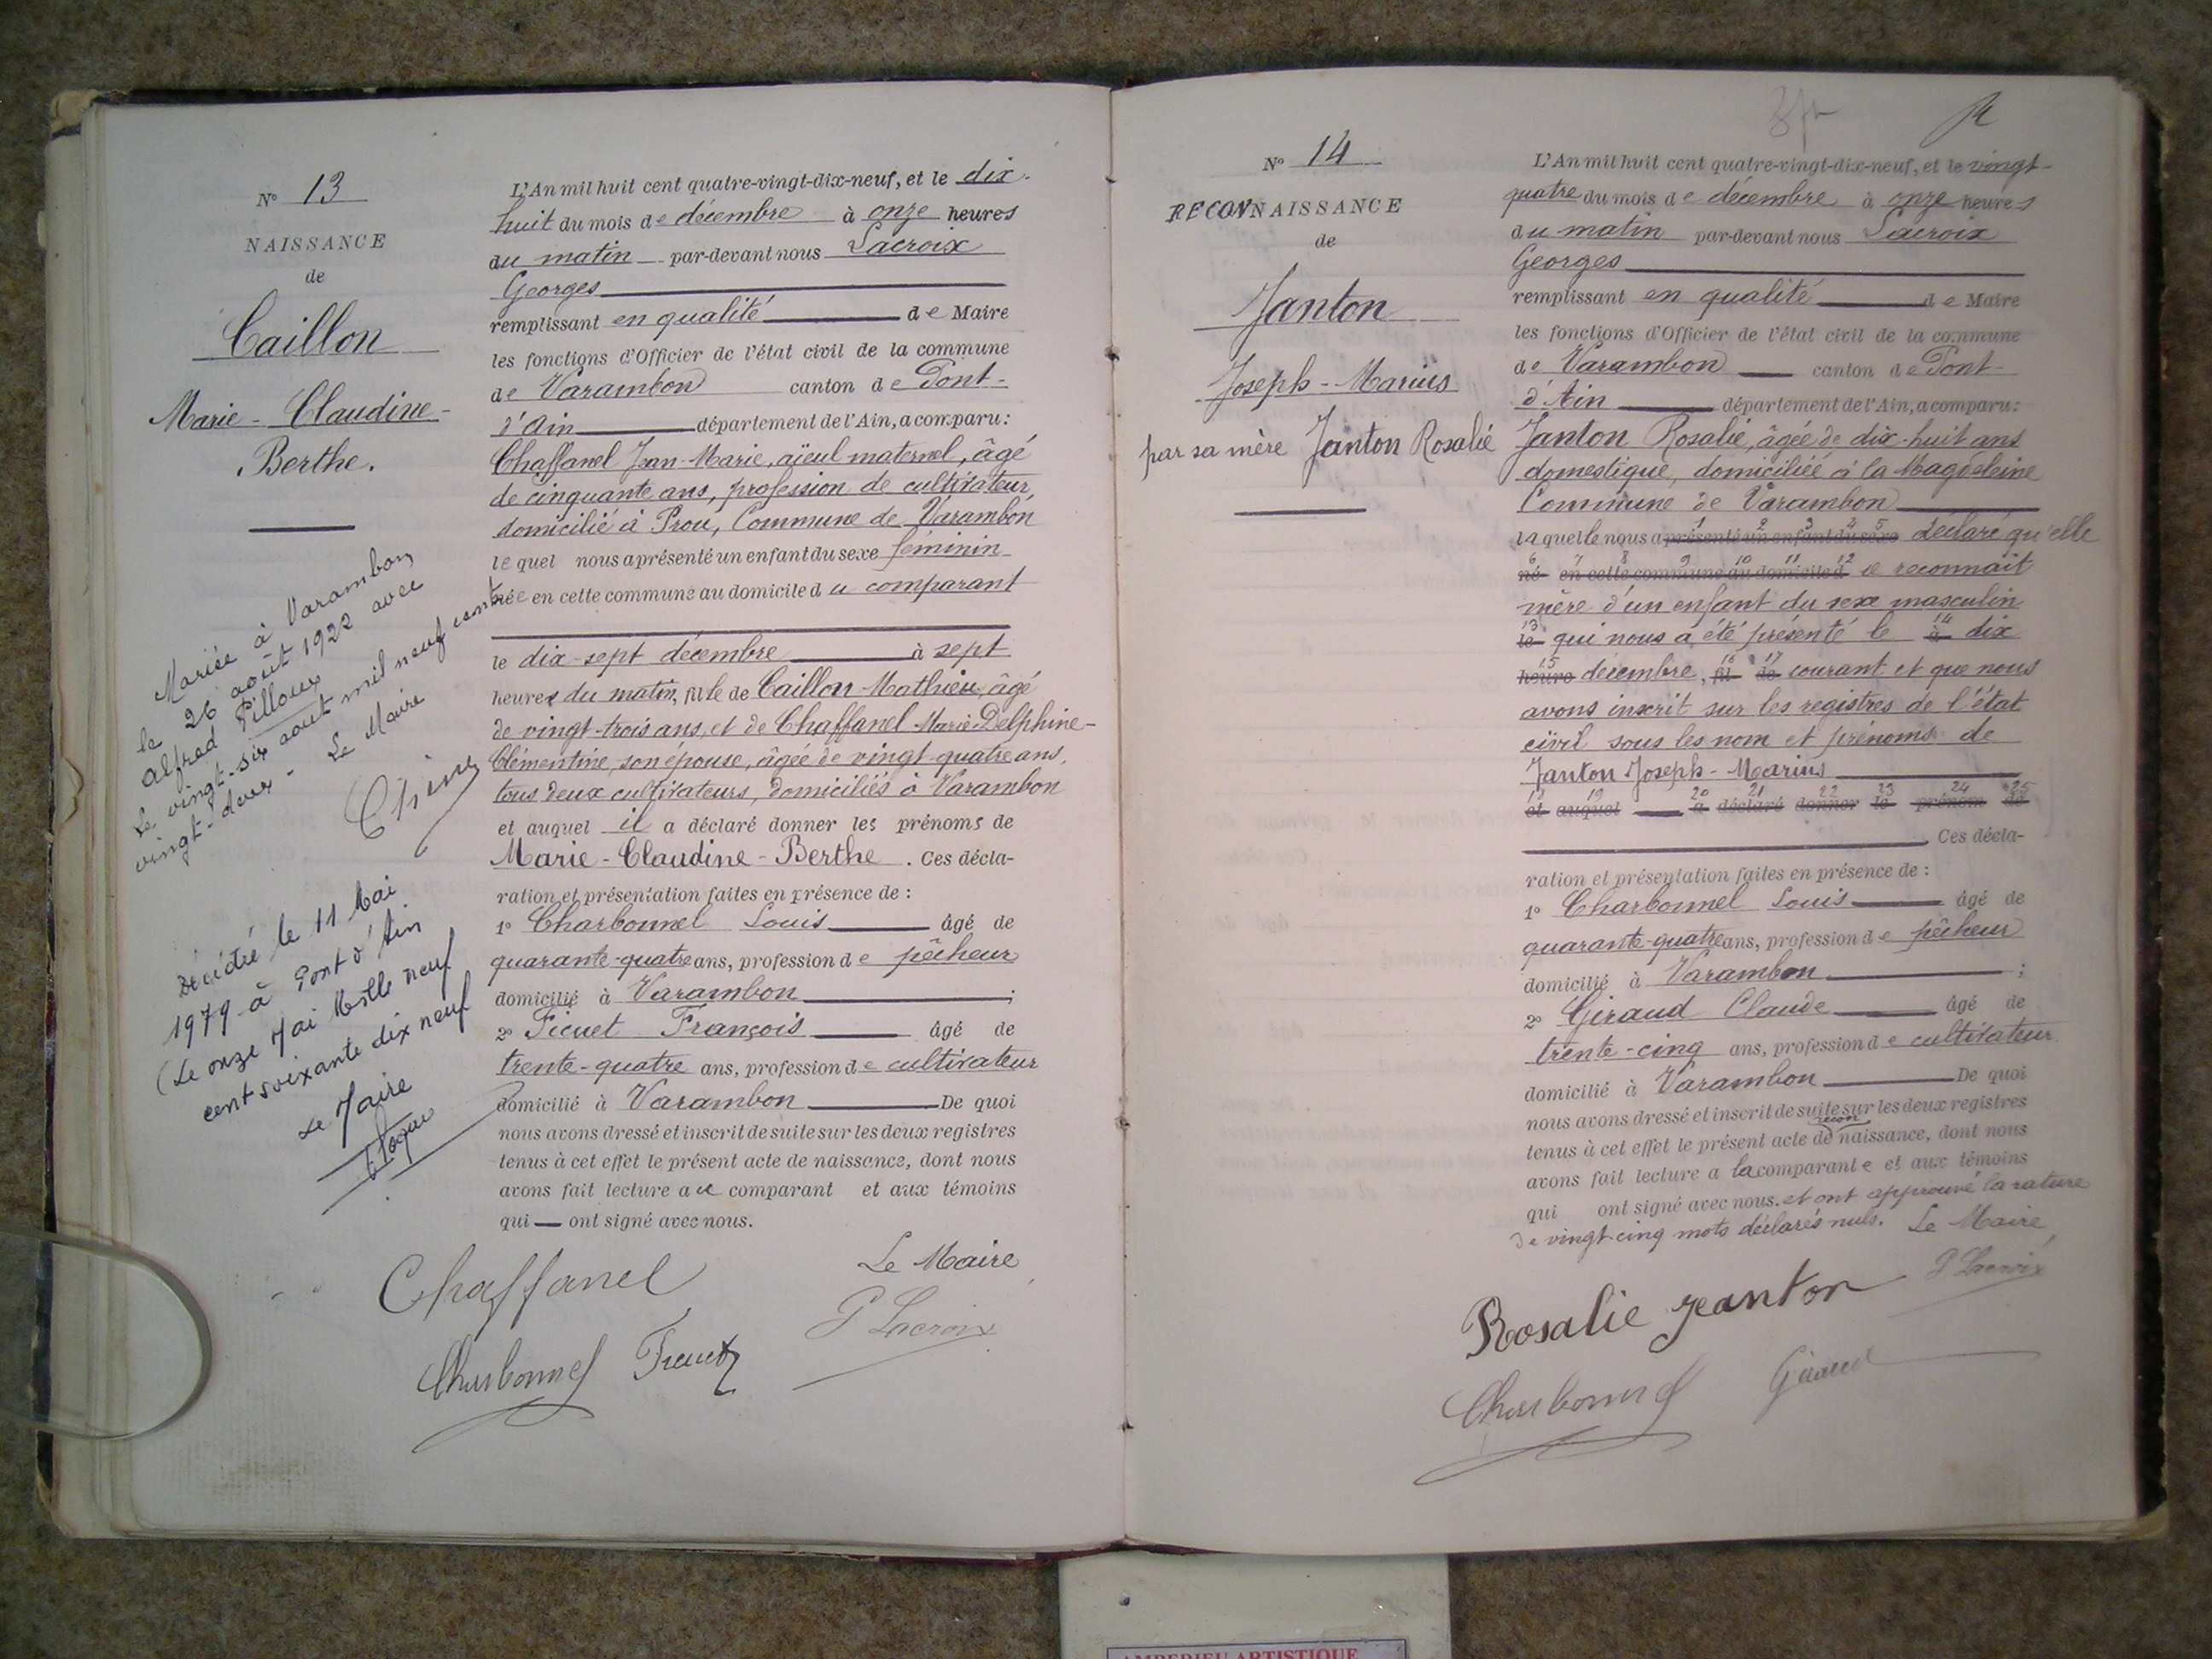 N° 13
NAISSANCE
de
Caillon
Marie - Claudine -
Berthe.
Mariée à Varambon
le 26 août 1922 avec
Alfred Pilloux
Le vingt-six aout mil neuf cent
vingt-deux - Le Maire
Décédée le 11 Mai
1979 à Pont d'Ain
(Le onze Mai Mille neuf
cent soixante dix neuf
Le Maire
L'An mil huit cent quatre-vingt-dix-neuf, et le dix-
huit du mois de décembre à onze heures
du matin par-devant nous Lacroix
Georges
remplissant en qualité de Maire
les fonctions d'Officier de l'état civil de la commune
de Varambon canton de Pont-
d'Ain département de l'Ain, a comparu:
Chaffanel Jean-Marie, aïeul maternel, âgé
de cinquante ans, profession de cultivateur
domicilié à Prou, Commune de Varambon
lequel nous a présenté un enfant du sexe féminin
née en cette commune au domicile du comparant
le dix-sept décembre à sept
heures du matin, fille de Caillon Mathieu, âgé
de vingt-trois ans, et de Chaffanel Marie-Delphine-
Clémentine, son épouse, âgée de vingt-quatre ans,
tous deux cultivateurs, domiciliés à Varambon
et auquel il a déclaré donner les prénoms de
Marie - Claudine - Berthe. Ces décla-
ration et présentation faites en présence de :
1° Charbonnel Louis âgé de
quarante-quatre ans, profession de pêcheur
domicilié à Varambon ;
2° Ficuet François âgé de
trente-quatre ans, profession de cultivateur
domicilié à Varambon De quoi
nous avons dressé et inscrit de suite sur les deux registres
tenus à cet effet le présent acte de naissance, dont nous
avons fait lecture au comparant et aux témoins
qui — ont signé avec nous.
Le Maire
Chaffanel
Charbonnel Ficuet
G Lacroix
N° 14
RECONNAISSANCE
de
Janton
Joseph - Marius
par sa mère Janton Rosalie
L'An mil huit cent quatre-vingt-dix-neuf, et le vingt-
quatre du mois de décembre à onze heures
du matin par-devant nous Lacroix
Georges
remplissant en qualité de Maire
les fonctions d'Officier de l'état civil de la commune
de Varambon canton de Pont-
d'Ain département de l'Ain, a comparu:
Janton Rosalie, âgée de dix-huit ans
domestique, domiciliée à la Magdeleine
Commune de Varambon
laquelle nous a présenté un enfant du sexe déclaré qu'elle
1 2 3 4 5
né en cette commune au domicile d se reconnait
6 7 8 9 10 11 12
mère d'un enfant du sexe masculin
le qui nous a été présenté le à dix
13 14
heure décembre, fil de courant et que nous
15 16 17
avons inscrit sur les registres de l'état
civil sous les nom et prénoms de
Janton Joseph - Marius
et auquel a déclaré donner le prénom de
18 19 20 21 22 23 24 25
Ces décla-
ration et présentation faites en présence de :
1° Charbonnel Louis âgé de
quarante-quatre ans, profession de pêcheur
domicilié à Varambon ;
2° Giraud Claude âgé de
trente-cinq ans, profession de cultivateur
domicilié à Varambon De quoi
nous avons dressé et inscrit de suite sur les deux registres
tenus à cet effet le présent acte de reconnaissance, dont nous
avons fait lecture a la comparante et aux témoins
qui ont signé avec nous. et ont approuvé la rature
de vingt-cinq mots déclarés nuls. Le Maire,
G Lacroix
Rosalie Jeanton
Charbonnel Giraud
AMBERIEU ARTISTIQUE